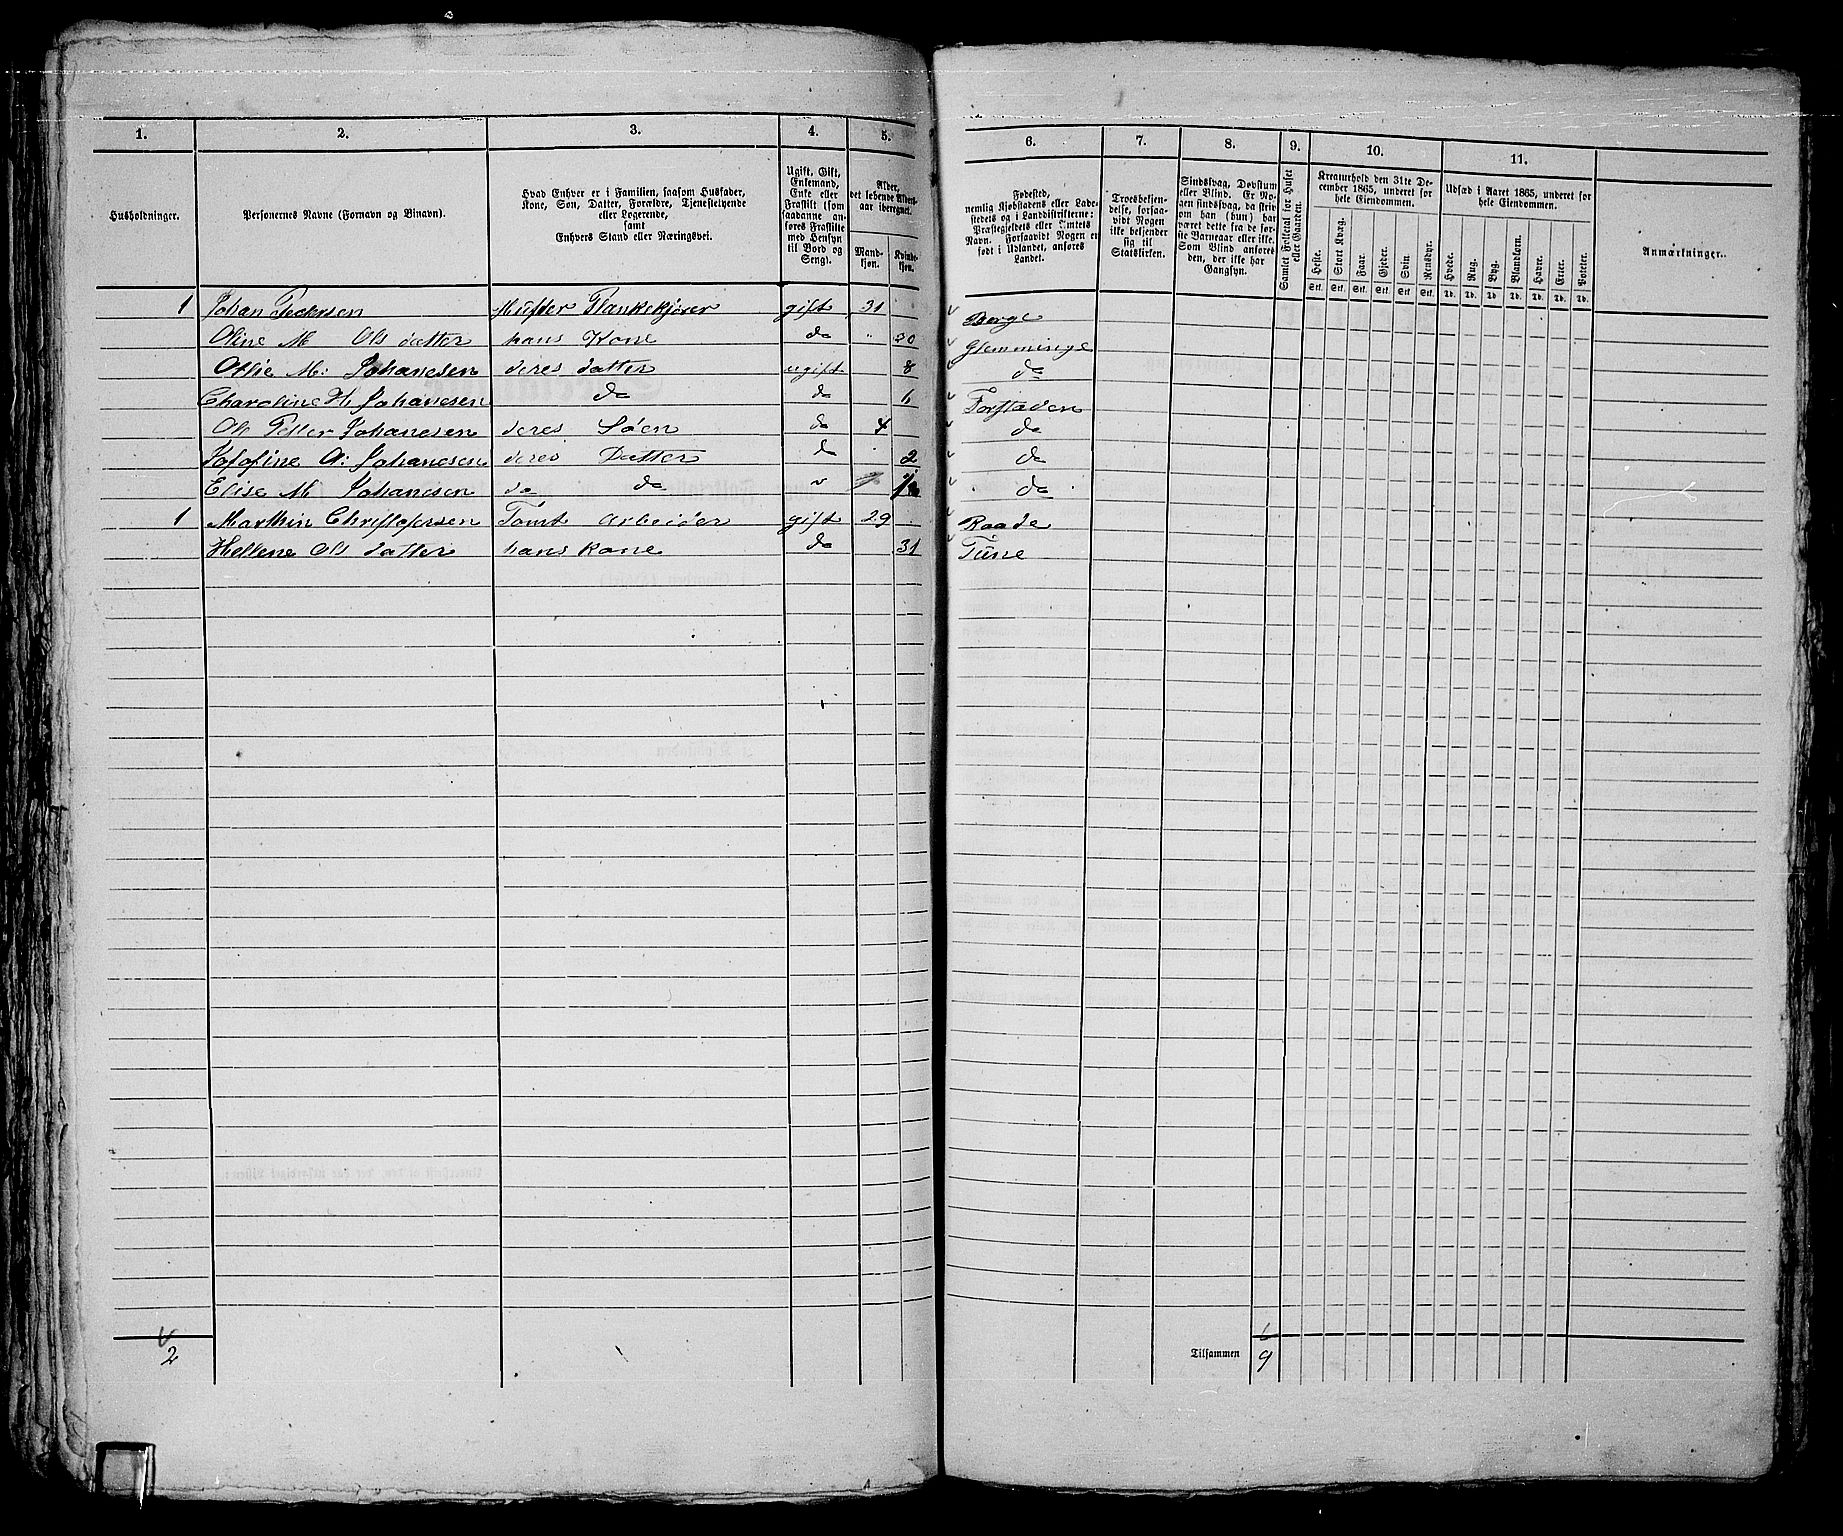 1. 2. 3. 4. 5.
Husholdninger.
Personernes Navne (Fornavn og Binavn).
Hvad Enhver er i Familien, saasom Husfader,
Kone, Søn, Datter, Forældre, Tjenestetyende
eller Logerende,
samt
Enhvers Stand eller Næringsvei.
Ugift, Gift,
Enkemand,
Enke eller
Fraskilt (som
saadanne an-
føres Fraskilte
med Hensyn
til Bord og
Seng).
Alder,
det løbende Alders-
aar iberegnet.
Mand-
kjøn.
Kvinde-
kjøn.
1 Johan Pedersen Husfder Plankekjører gift 31
Oline M Ols datter hans Kone do " 30
Othie M: Johanesen deres datter ugift 8
Charoline H Johanesen do do 6
Ole Petter Johanesen deres Søen do 4
Josefine A: Johanesen deres Datter do 2
Elise M Johanesen do do
1 Marthin Christofersen Tomt Arbeider gift 29
Hellene Ols datter hans Kone do 31
2
6. 7. 8. 9. 10. 11.
Fødested,
nemlig Kjøbstadens eller Lade-
stedets og i Landdistrikterne:
Præstegjeldets eller Sognets
Navn. Forsaavidt Nogen er
født i Udlandet, anføres
Landet.
Troesbekjen-
delse, forsaa-
vidt Nogen
ikke bekjender
sig til
Statskirken.
Sindssvag, Døvstum
eller Blind. Er No-
gen sindssvag, da skriv
om han (hun) har
været dette fra de før-
ste Barneaar eller ikke.
Som Blind anføres
den, der ikke har
Gangsyn.
Samlet Folketal for Huset
eller Gaarden.
Kreaturhold den 31te De-
cember 1865, underet for
hele Eiendommen.
Heste. Stort Kvæg. Faar. Gjeder. Svin. Rensdyr.
Stk. Stk. Stk. Stk. Stk. Stk.
Udsæd i Aaret 1865, underet for
hele Eiendommen.
Hvede. Rug. Byg. Blandkorn. Havre. Erter. Poteter.
Td. Td. Td. Td. Td. Td. Td.
Anmærkninger.
Borge
Glemminge
do
Forstaden
do
do
do
Raade
Tune
Tilsammen 9